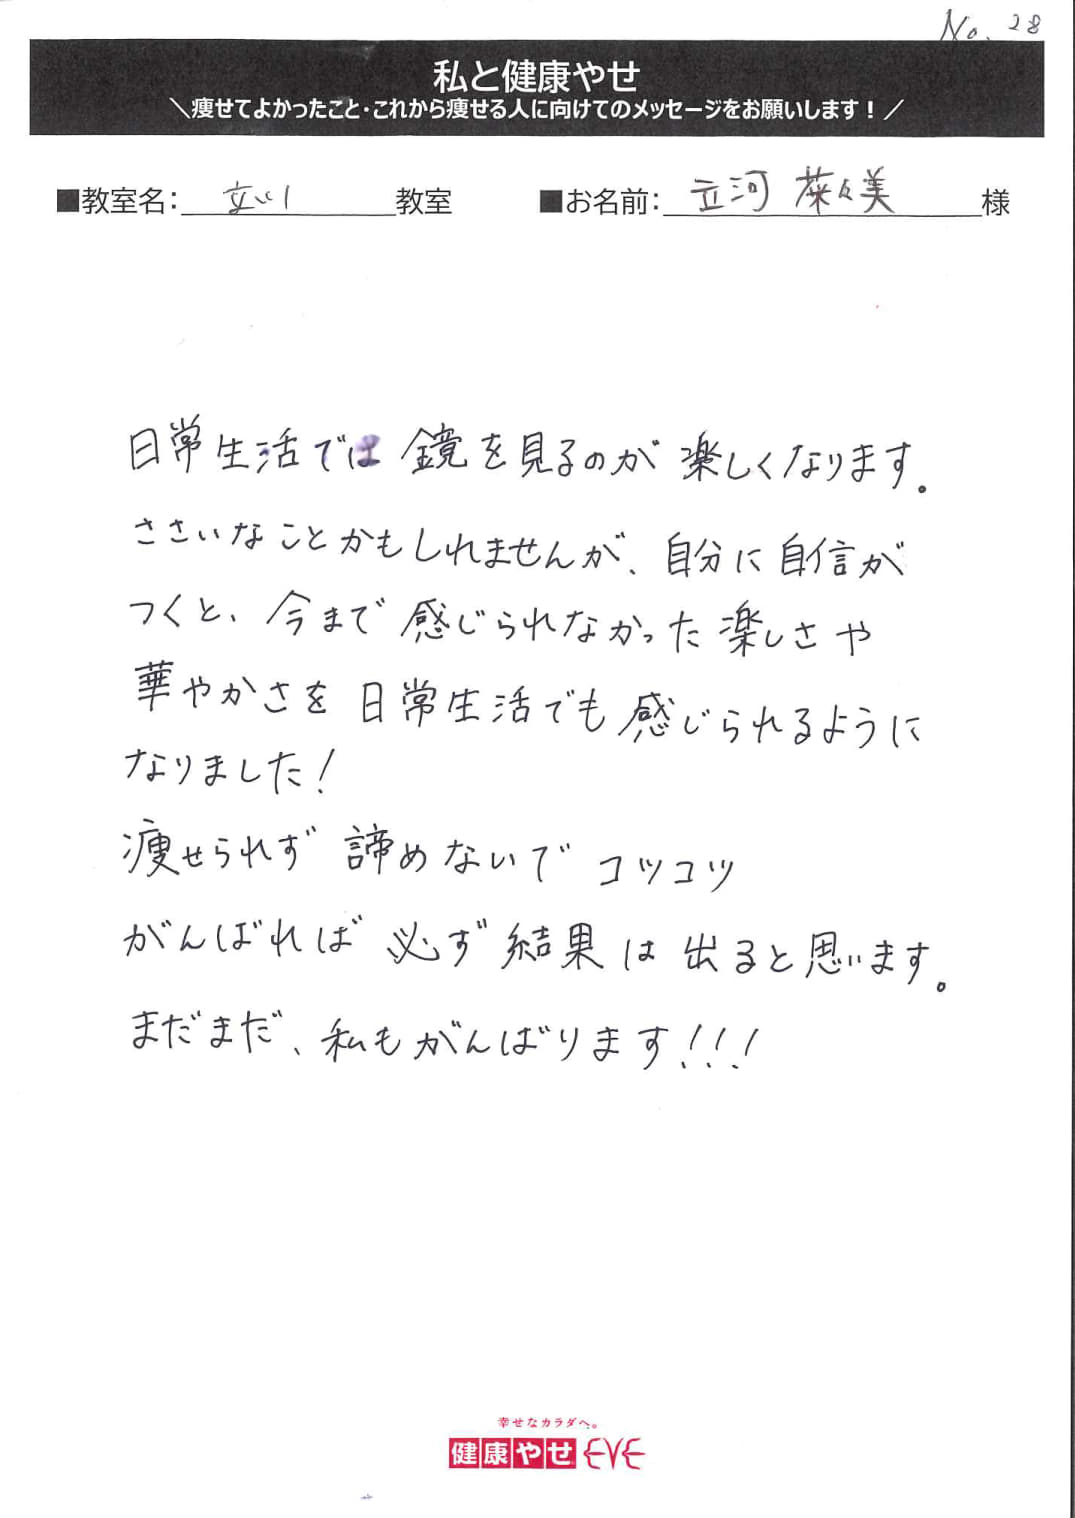 No. 28
私と健康やせ
＼痩せてよかったこと・これから痩せる人に向けてのメッセージをお願いします！／
■教室名：立川教室 ■お名前：立河 菜々美様
日常生活では 鏡を見るのが 楽しくなります。
ささいなことかもしれませんが、自分に自信が
つくと、今まで 感じられなかった楽しさや
華やかさを 日常生活でも感じられるように
なりました！
痩せられず 諦めないで コツコツ
がんばれば 必ず結果は出ると思います。
まだまだ、私もがんばります！！！
幸せなカラダへ。
健康やせ EVE